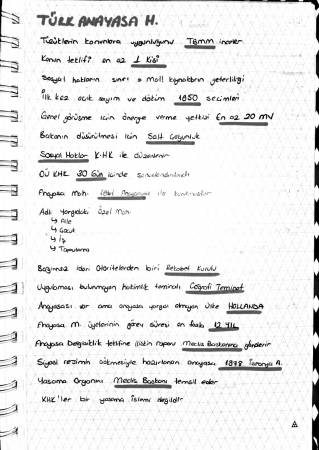 TÜRK ANAYASA H.
Tüzüklerin kanunlara uygunluğunu TBMM inceler
Kanun teklifi en az 1 Kişi
Sosyal hakların sınırı → Mali kaynakların yeterliliği
İlk kez açık sayım ve döküm 1950 seçimleri
Genel görüşme için önerge verme yetkisi En az 20 mv
Bakanın düşürülmesi için Salt Çoğunluk
Sosyal Haklar KHK ile düzenlenir
OÜ KHK 30 Gün içinde
Anayasa Mah. 1961 Anayasası ile
Adli Yargıdaki Özel Mah.
↳ Aile
↳ Çocuk
↳ İş
↳
Bağımsız İdari Otoritelerden biri Rekabet Kurulu
Uygulaması bulunmayan hakimlik teminatı Coğrafi Teminat
Anayasası var ama anayasa yargısı olmayan ülke HOLLANDA
Anayasa M. üyelerinin görev süresi en fazla 12 YIL
Anayasa Değişiklik teklifine ilişkin raporu Meclis Başkanına gönderir
Siyasi rejimin çökmesiyle hazırlanan anayasa 1978 İspanya A.
Yasama Organını Meclis Başkanı temsil eder
KHK'ler bir yasama işlemi değildir